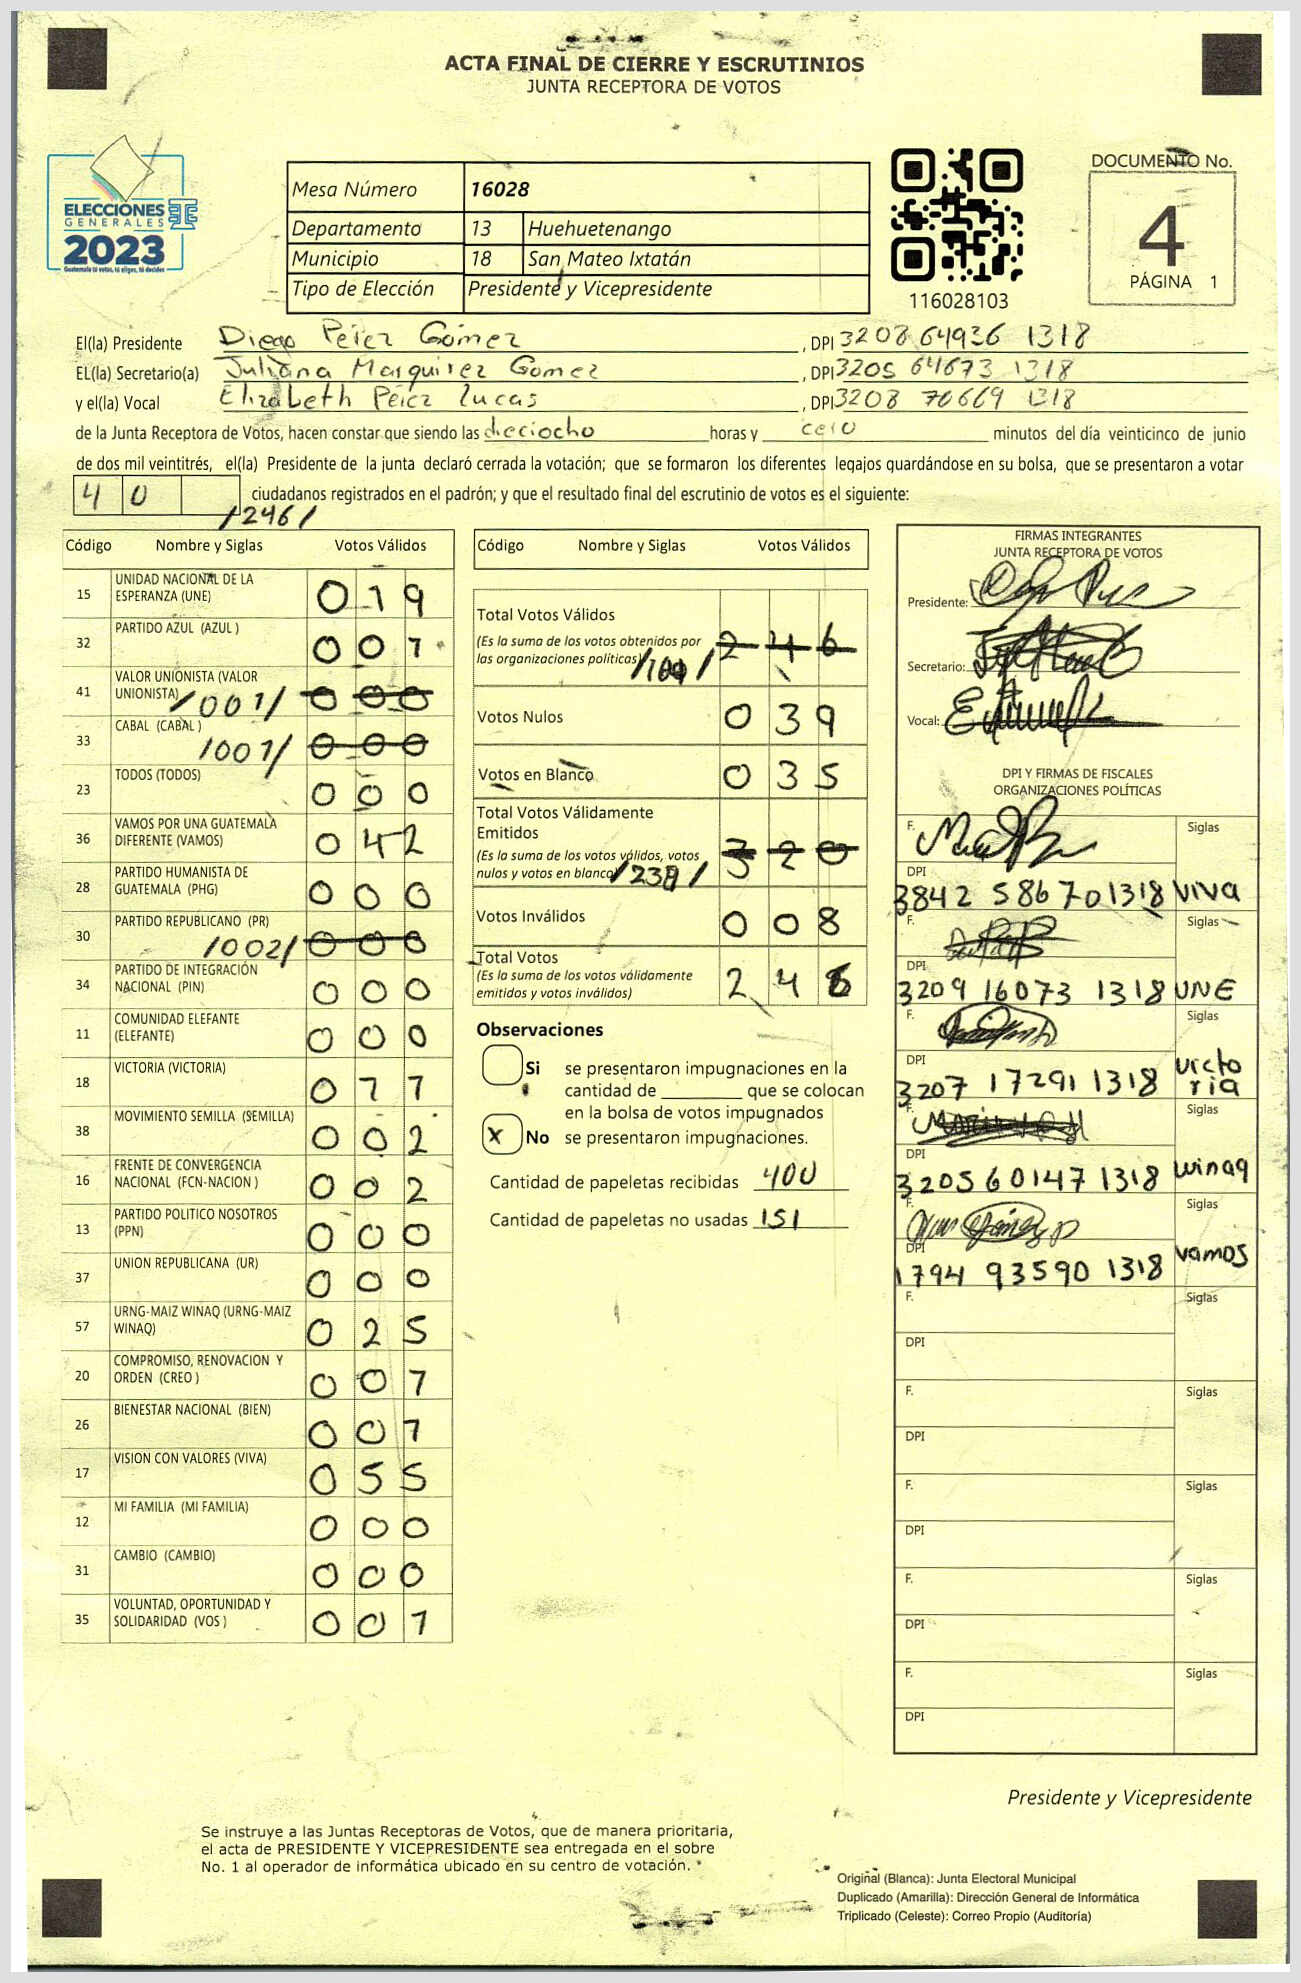 ACTA FINAL DE CIERRE Y ESCRUTINIOS
JUNTA RECEPTORA DE VOTOS
ELECCIONES
GENERALES
2023
Guatemala tú votas, tú eliges, tú decides
Mesa Número 16028
Departamento 13 Huehuetenango
Municipio 18 San Mateo Ixtatán
Tipo de Elección Presidente y Vicepresidente
116028103
DOCUMENTO No.
4
PÁGINA 1
El(la) Presidente Diego Pérez Gómez , DPI 3208 64936 1318
EL(la) Secretario(a) Juliana Marquirez Gomez , DPI 3205 64673 1318
y el(la) Vocal Elizabeth Pérez Lucas , DPI 3208 70669 1318
de la Junta Receptora de Votos, hacen constar que siendo las dieciocho horas y cero minutos del día veinticinco de junio
de dos mil veintitrés, el(la) Presidente de la junta declaró cerrada la votación; que se formaron los diferentes legajos guardándose en su bolsa, que se presentaron a votar
4 0 ciudadanos registrados en el padrón; y que el resultado final del escrutinio de votos es el siguiente:
/246/
Código Nombre y Siglas Votos Válidos
15 UNIDAD NACIONAL DE LA ESPERANZA (UNE) 0 1 9
32 PARTIDO AZUL (AZUL ) 0 0 1
41 VALOR UNIONISTA (VALOR UNIONISTA) /001/ 0 0 0
33 CABAL (CABAL ) /001/ 0 0 0
23 TODOS (TODOS) 0 0 0
36 VAMOS POR UNA GUATEMALA DIFERENTE (VAMOS) 0 4 2
28 PARTIDO HUMANISTA DE GUATEMALA (PHG) 0 0 0
30 PARTIDO REPUBLICANO (PR) /002/ 0 0 0
34 PARTIDO DE INTEGRACIÓN NACIONAL (PIN) 0 0 0
11 COMUNIDAD ELEFANTE (ELEFANTE) 0 0 0
18 VICTORIA (VICTORIA) 0 7 7
38 MOVIMIENTO SEMILLA (SEMILLA) 0 0 2
16 FRENTE DE CONVERGENCIA NACIONAL (FCN-NACION ) 0 0 2
13 PARTIDO POLITICO NOSOTROS (PPN) 0 0 0
37 UNION REPUBLICANA (UR) 0 0 0
57 URNG-MAIZ WINAQ (URNG-MAIZ WINAQ) 0 2 5
20 COMPROMISO, RENOVACION Y ORDEN (CREO ) 0 0 7
26 BIENESTAR NACIONAL (BIEN) 0 0 1
17 VISION CON VALORES (VIVA) 0 5 5
12 MI FAMILIA (MI FAMILIA) 0 0 0
31 CAMBIO (CAMBIO) 0 0 0
35 VOLUNTAD, OPORTUNIDAD Y SOLIDARIDAD (VOS ) 0 0 1
Código Nombre y Siglas Votos Válidos
Total Votos Válidos 2 4 6
(Es la suma de los votos obtenidos por
las organizaciones políticas)
Votos Nulos 0 3 9
Votos en Blanco 0 3 5
Total Votos Válidamente
Emitidos 3 2 0
(Es la suma de los votos válidos, votos
nulos y votos en blanco)
Votos Inválidos 0 0 8
Total Votos 2 4 6
(Es la suma de los votos válidamente
emitidos y votos inválidos)
Observaciones
Si se presentaron impugnaciones en la
cantidad de ________ que se colocan
en la bolsa de votos impugnados
x No se presentaron impugnaciones.
Cantidad de papeletas recibidas 400
Cantidad de papeletas no usadas 151
FIRMAS INTEGRANTES
JUNTA RECEPTORA DE VOTOS
Presidente:
Secretario:
Vocal:
DPI Y FIRMAS DE FISCALES
ORGANIZACIONES POLÍTICAS
F. Siglas
DPI
3842 58670 1318 VIVA
F. Siglas
DPI
3209 16073 1318 UNE
F. Siglas
DPI
3207 17291 1318 victoria
F. Siglas
DPI
3205 60147 1318 winaq
F. Siglas
DPI
1794 93590 1318 vamos
F. Siglas
DPI
F. Siglas
DPI
F. Siglas
DPI
F. Siglas
DPI
F. Siglas
DPI
Presidente y Vicepresidente
Se instruye a las Juntas Receptoras de Votos, que de manera prioritaria,
el acta de PRESIDENTE Y VICEPRESIDENTE sea entregada en el sobre
No. 1 al operador de informática ubicado en su centro de votación.
Original (Blanca): Junta Electoral Municipal
Duplicado (Amarilla): Dirección General de Informática
Triplicado (Celeste): Correo Propio (Auditoría)